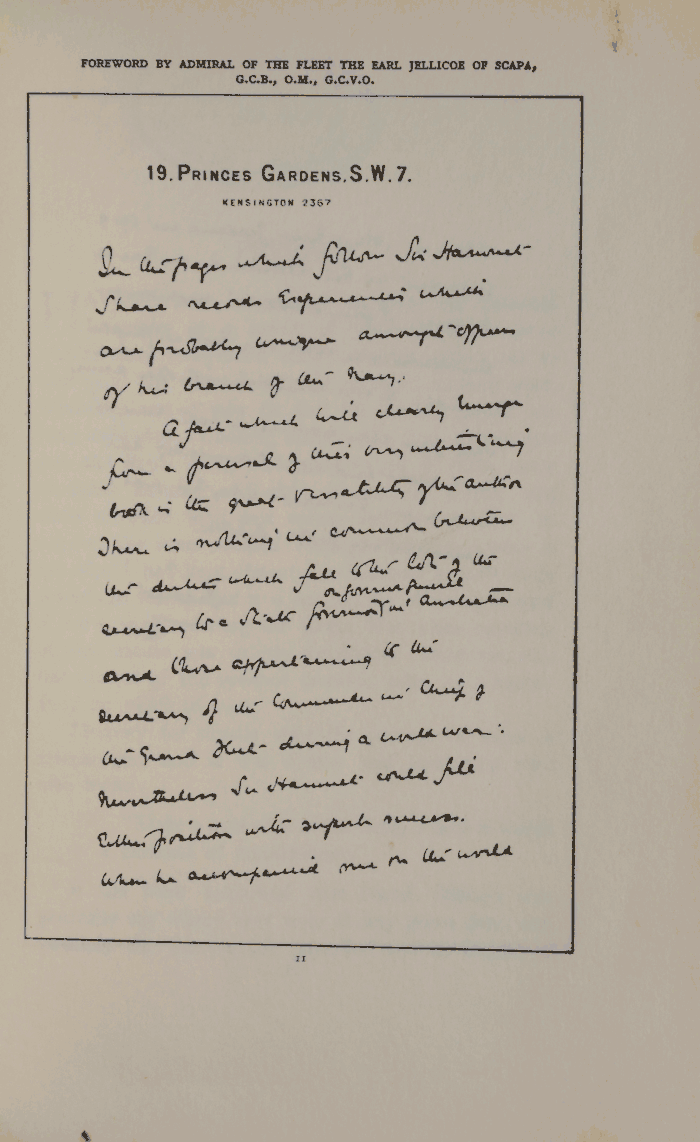 FOREWORD BY ADMIRAL OF THE FLEET THE EARL JELLICOE OF SCAPA,
G.C.B., O.M., G.C.V.O.
19. PRINCES GARDENS. S.W. 7.
KENSINGTON 2367
In the pages which follow Sir Hamnet
Share records Experiences which
are probably unique amongst officers
of his branch of the Navy.
A fact which will clearly Emerge
from a perusal of this very interesting
book is the great versatility of the author
There is nothing in common between
the duties which fall to the lot of the
or Governor General
secretary to a State Governor in Australia
and those appertaining to the
secretary of the Commander in Chief of
the Grand Fleet during a world war:
Nevertheless Sir Hamnet could fill
Either position with superb success.
When he accompanied me on the world
11